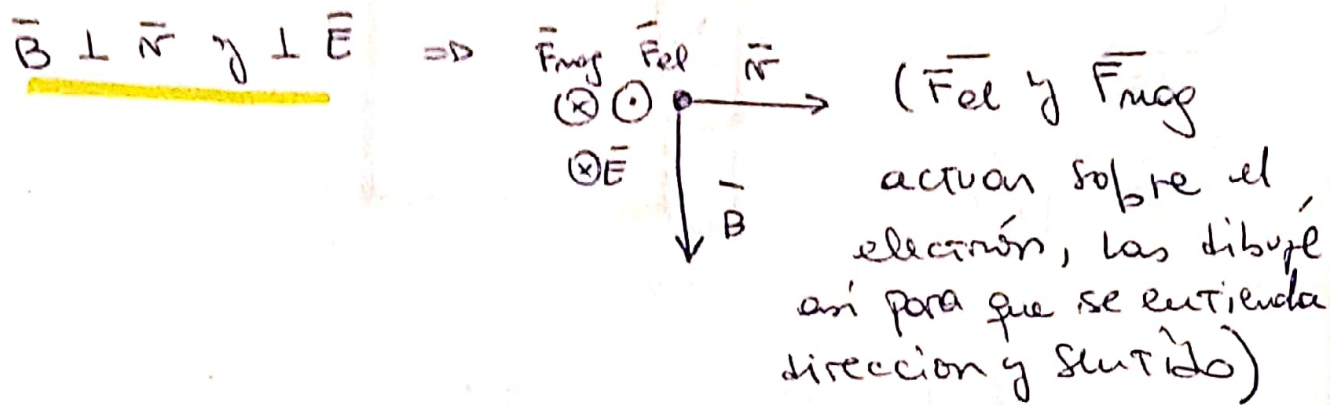 B̄ ⊥ v̄ y ⊥ Ē ⇒ F̄mag F̄el v̄
⊗ ⊙
⊗Ē
B̄
(F̄el y F̄mag
actuan sobre el
electrón, las dibujé
así para que se entienda
direccion y sentido)